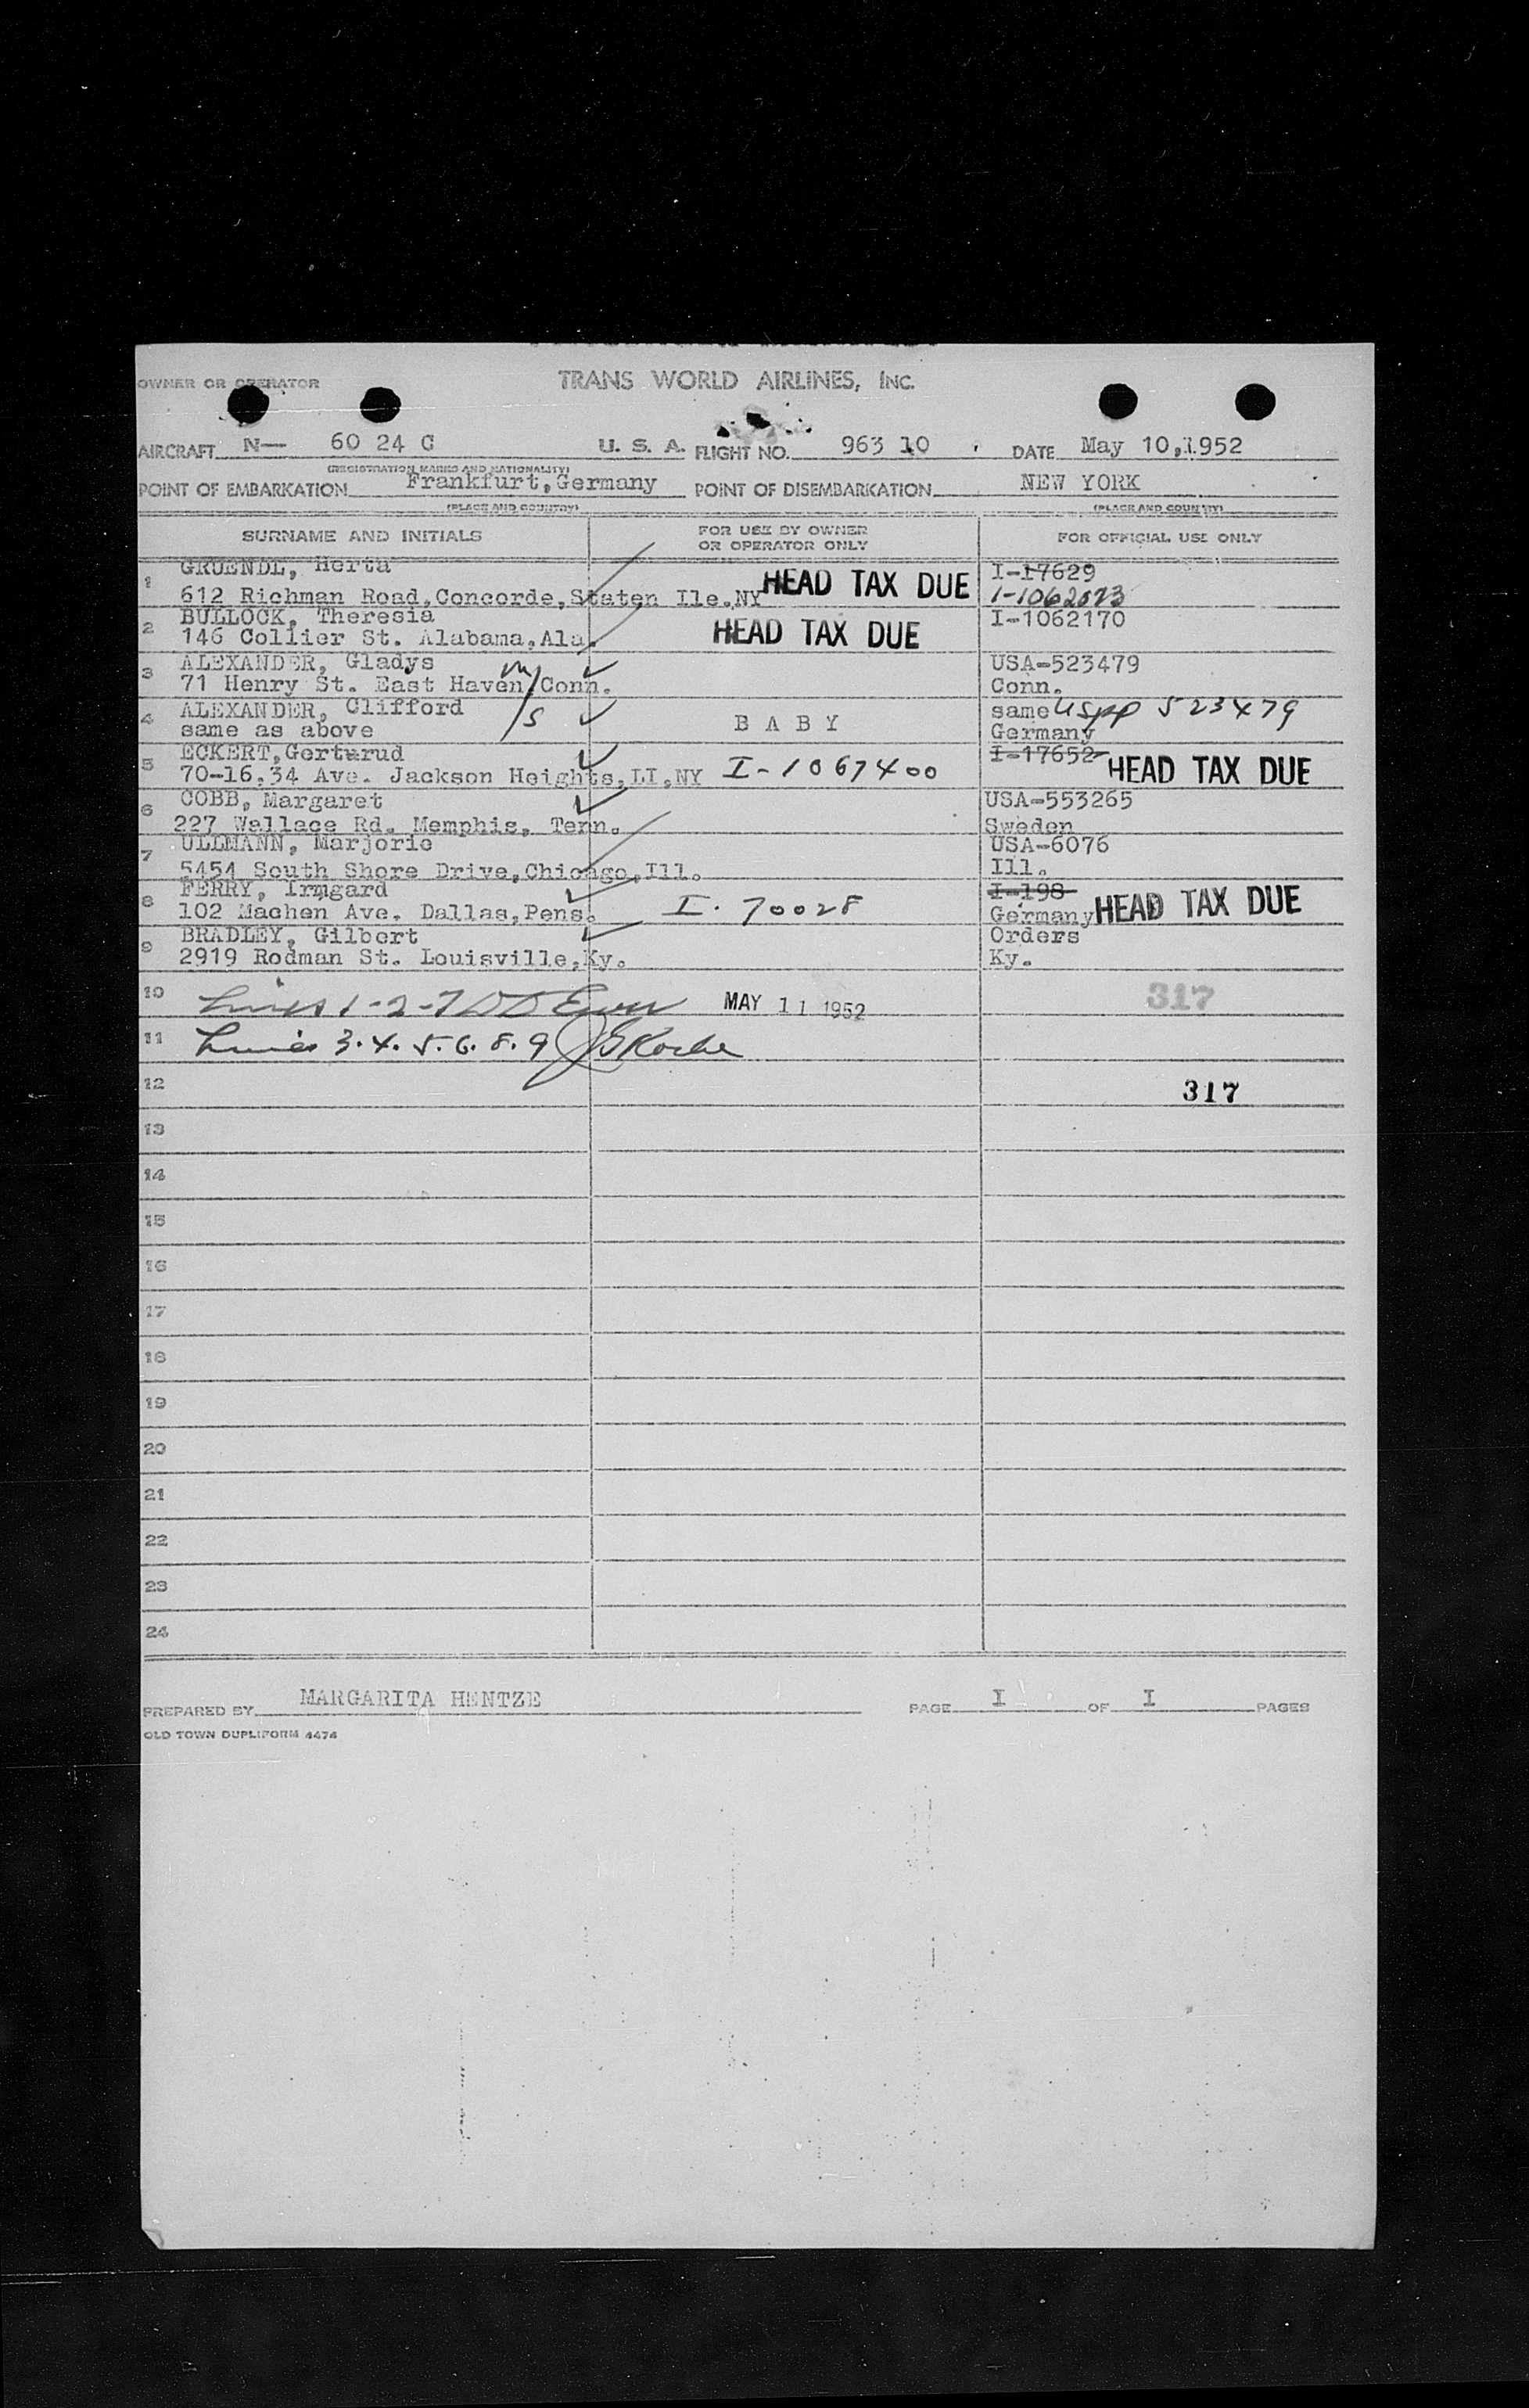 OWNER OR OPERATOR TRANS WORLD AIRLINES, INC.
AIRCRAFT N— 60 24 C U. S. A. FLIGHT NO. 963 10 DATE May 10, 1952
(REGISTRATION MARKS AND NATIONALITY)
POINT OF EMBARKATION Frankfurt, Germany POINT OF DISEMBARKATION NEW YORK
(PLACE AND COUNTRY) (PLACE AND COUNTRY)
SURNAME AND INITIALS FOR USE BY OWNER OR OPERATOR ONLY FOR OFFICIAL USE ONLY
1 GRUENDL, Herta I-17629
612 Richman Road, Concorde, Staten Ile. NY HEAD TAX DUE
2 BULLOCK, Theresia I-1062170
146 Collier St. Alabama, Ala. HEAD TAX DUE
3 ALEXANDER, Gladys M USA-523479
71 Henry St. East Haven, Conn. Conn.
4 ALEXANDER, Clifford S same uspp 523479
same as above B A B Y Germany
5 ECKERT, Gerturud I-17652
70-16.34 Ave. Jackson Heights, LI, NY I-1067400 HEAD TAX DUE
6 COBB, Margaret USA-553265
227 Wallace Rd. Memphis, Tenn. Sweden
7 ULLMANN, Marjorie USA-6076
5454 South Shore Drive, Chicago, Ill. Ill.
8 FERRY, Irmgard I-198
102 Machen Ave. Dallas, Pens. I. 70028 Germany HEAD TAX DUE
9 BRADLEY, Gilbert Orders
2919 Rodman St. Louisville, Ky. Ky.
10 Lines 1-2-7 MAY 11 1952 317
11 Lines 3.4.5.6.8.9
12 317
13
14
15
16
17
18
19
20
21
22
23
24
PREPARED BY MARGARITA HENTZE PAGE I OF I PAGES
OLD TOWN DUPLIFORM 4474